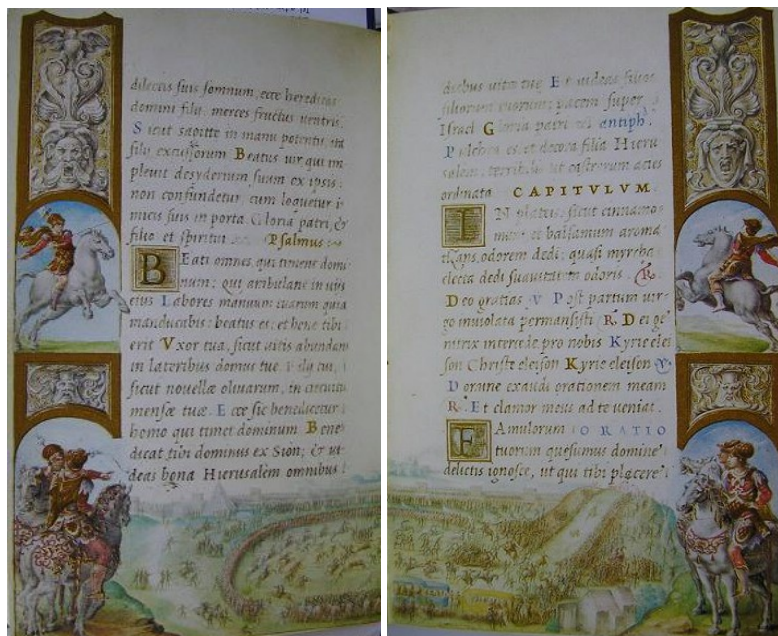 dilectis suis somnum, ecce hereditas
domini filii: merces fructus ventris.
Sicut sagitte in manu potentis, ita
filii excussorum Beatus vir qui im-
plevit desyderium suum ex ipsis:
non confundetur, cum loquetur i-
nimicis suis in porta. Gloria patri, &
filio et spiritui Psalmus
BEati omnes, qui timent domi-
num: qui ambulant in vijs
eius Labores manuum tuarum quia
manducabis: beatus es, et bene tibi
erit Vxor tua, sicut vitis abundans
in lateribus domus tue. Filij tui,
sicut novellæ olivarum, in circuitu
mensæ tuæ. Ecce sic benedicetur
homo qui timet dominum Bene-
dicat tibi dominus ex Sion; & vi-
deas bona Hierusalem omnibus
diebus vitæ tuę Et videas filios
filiorum tuorum, pacem super
Israel Gloria patri antiph.
Pulchra es, et decora filia Hieru
salem, terribilis ut castrorum acies
ordinata CAPITVLVM
IN plateis, sicut cinnamo-
mum et balsamum aroma
tizans, odorem dedi: quasi myrrha
electa dedi suavitatem odoris. R.
Deo gratias V Post partum vir-
go inviolata permansisti R. Dei ge
nitrix intercede pro nobis Kyrie elei
son Christe eleison Kyrie eleison V
Domine exaudi orationem meam
R. Et clamor meus ad te veniat.
FAmulorum ORATIO
tuorum quesumus domine
delictis ignosce, ut qui tibi placere